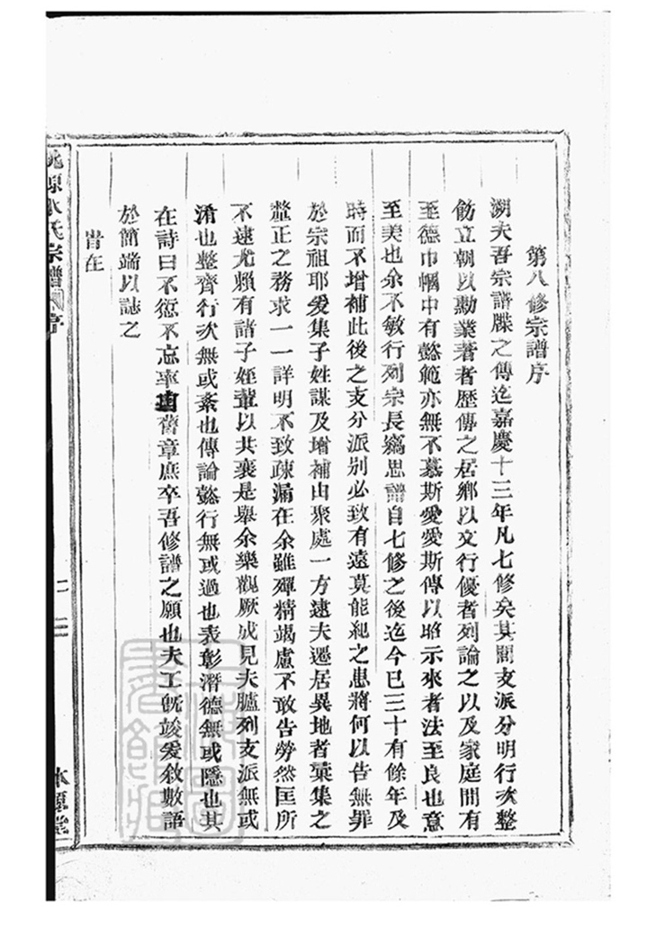 第八修宗譜序
溯夫吾宗譜牒之傳迄嘉慶十三年凡七修矣其間支派分明行次整
飭立朝以勳業著者歷傳之居鄉以文行優者列論之以及家庭間有
至德巾幗中有懿範亦無不慕斯愛愛斯傳以昭示來者法至良也意
至美也余不敏行列宗長竊思譜自七修之後迄今已三十有餘年及
時而不增補此後之支分派別必致有遠莫能紀之患將何以告無罪
於宗祖耶爰集子姓謀及增補由聚處一方逮夫遷居異地者彙集之
釐正之務求一一詳明不致疎漏在余雖殫精竭慮不敢告勞然匡所
不逮尤賴有諸子姪輩以共襄是舉余樂觀厥成見夫臚列支派無或
淆也整齊行次無或紊也傳論懿行無或過也表彰潛德無或隱也其
在詩曰不愆不忘率由舊章庶卒吾修譜之願也夫工旣竣爰敘數語
於簡端以誌之
旹在
源 氏宗譜 序